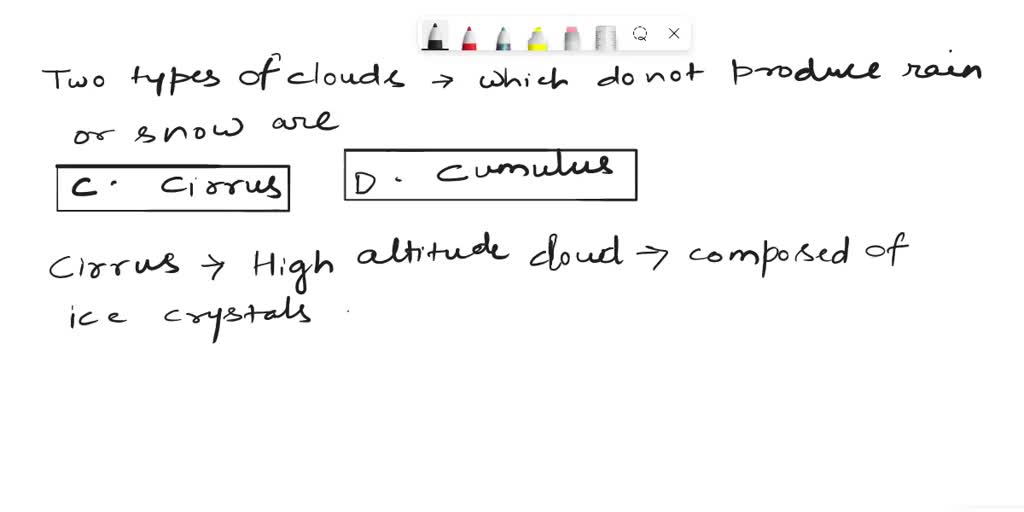 Two types of clouds → which do not produce rain
or snow are
C. Cirrus D. Cumulus
Cirrus → High altitude cloud → composed of
ice crystals.